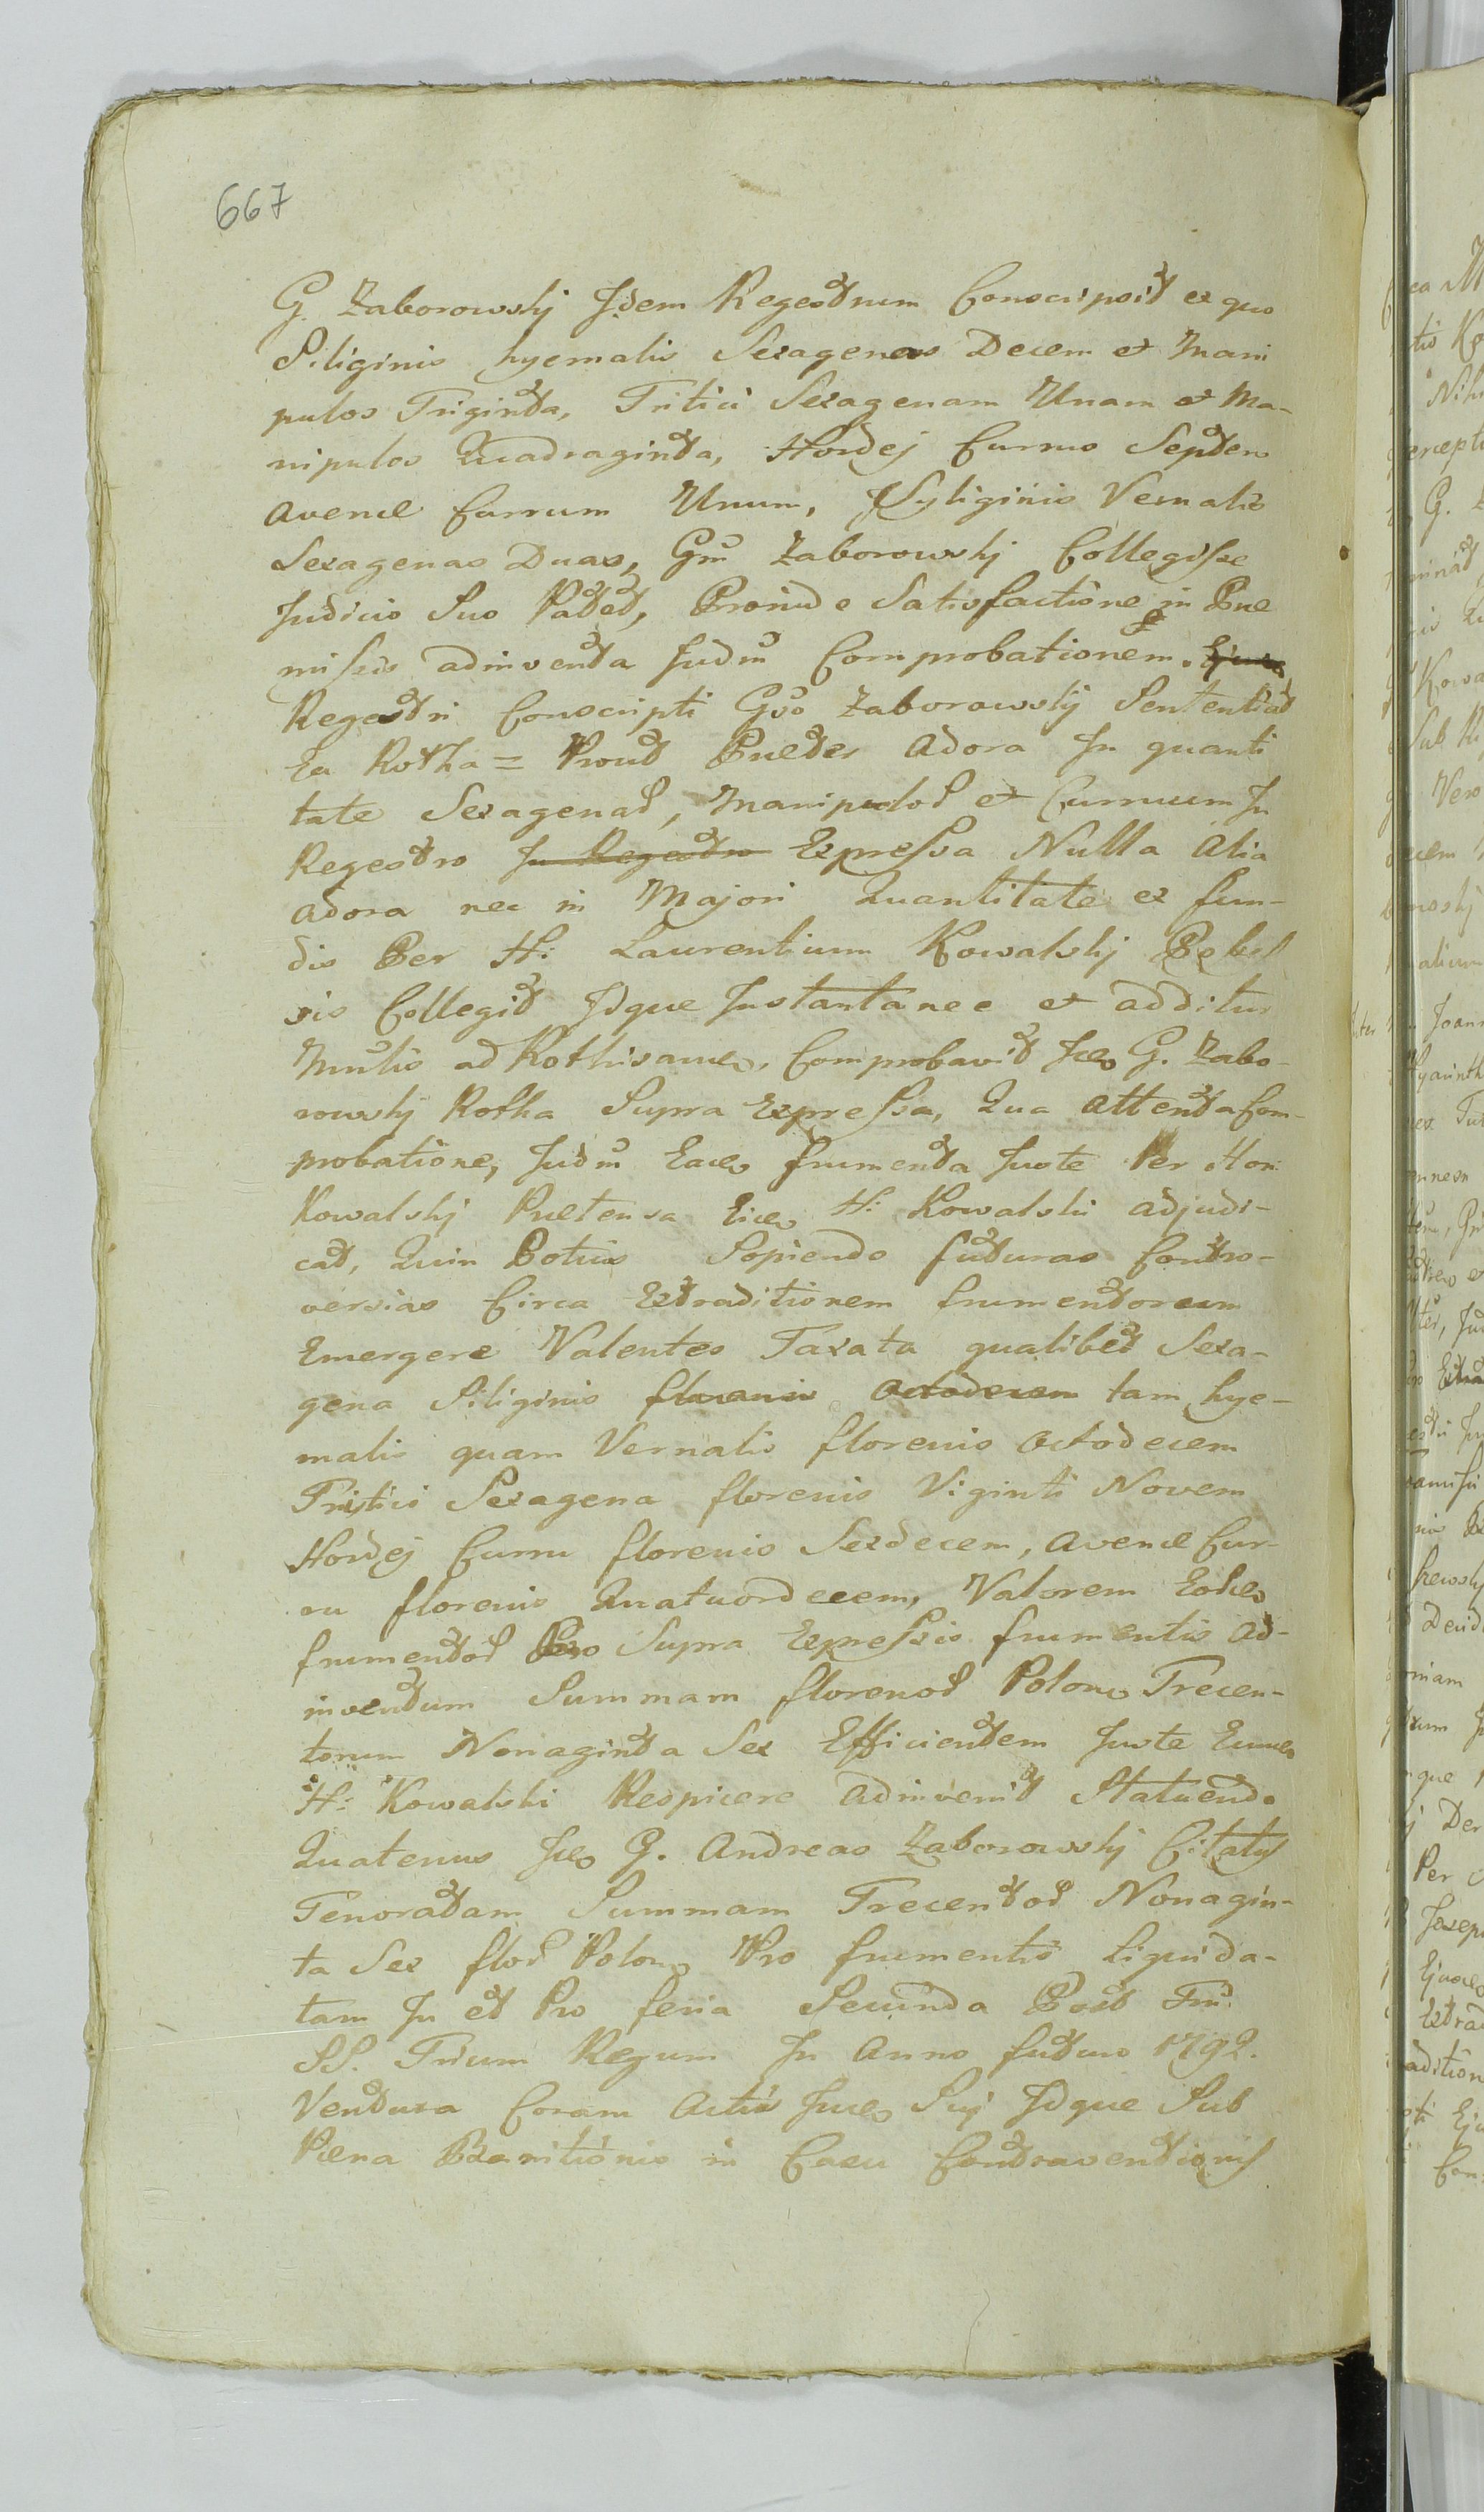 667
G. Zaborowskj Jdem Regestrum Conscripsit ex quo
Siliginis hyemalis Sexagenas Decem et Mani
pulos Triginta, Tritici Sexagenam Unam et Ma-
nipulos Quadraginta, Hordej Currus Septem
Avenæ Currum Unum, Syliginis Vernalis
Sexagenas Duas, Gnũ Zaborowskj Collegisse
Judicio Suo Patet, Proinde Satisfactione in Præ
missis adinventa Judm̃ Comprobationem
Regestri Conscripti Gso Zaborowskj Sententiat
Ea Rotha = Prout Præter Adora Jn quanti
tate Sexagenar, Manipulor et Curruum Jn
Regestro Jn Regestro Expressa Nulla Alia
Adora nec in Majori Quantitate ex fun-
dis Per H: Laurentium Kowalskj
sis Collegit Jdque Jnstantanee et additur
ad Rothisance, Comprobavit Jce G. Zabo-
rowskj Rotha Supra Expressa, Qua Attenta Com-
probatione, Judm̃ Eace frumenta Juste Per Hon
Kowalskj Prætensa Eice H: Kowalski adjudi-
cat, Quin Potius Sopiendo futuras Contro-
versias Circa Extraditionem frumentorum
Emergere Valentes Taxata qualibet Sexa-
gena Siliginis florenis Octodecem tam hye-
malis quam Vernalis florenis Octodecem
Tritici Sexagena florenis Viginti Novem
Hordej Curru florenis Sexdecem, Avenæ Cur-
ru florenis Quatuordecem, Valorem Eolce
frumentor Pro Supra Expressis frumentis Ad-
inventum Summam florenor Polon Trecen-
torum Nonaginta Sex Efficientem Juste Eunce
H: Kowalski Respicere Adinvenit Statuendo
Quatenus Jce G. Andreas Zaborowskj Citatus
Tenoratam Summam Trecentor Nonagin-
ta Sex flor Polon Pro frumentis Liquida-
tam Jn et Pro feria Secunda Post
SS. Trium Regum Jn Anno futuro 1792.
Ventura Coram Actis Juce Suj Jdque Sub
Pæna Bannitionis in Casu Contraventionis